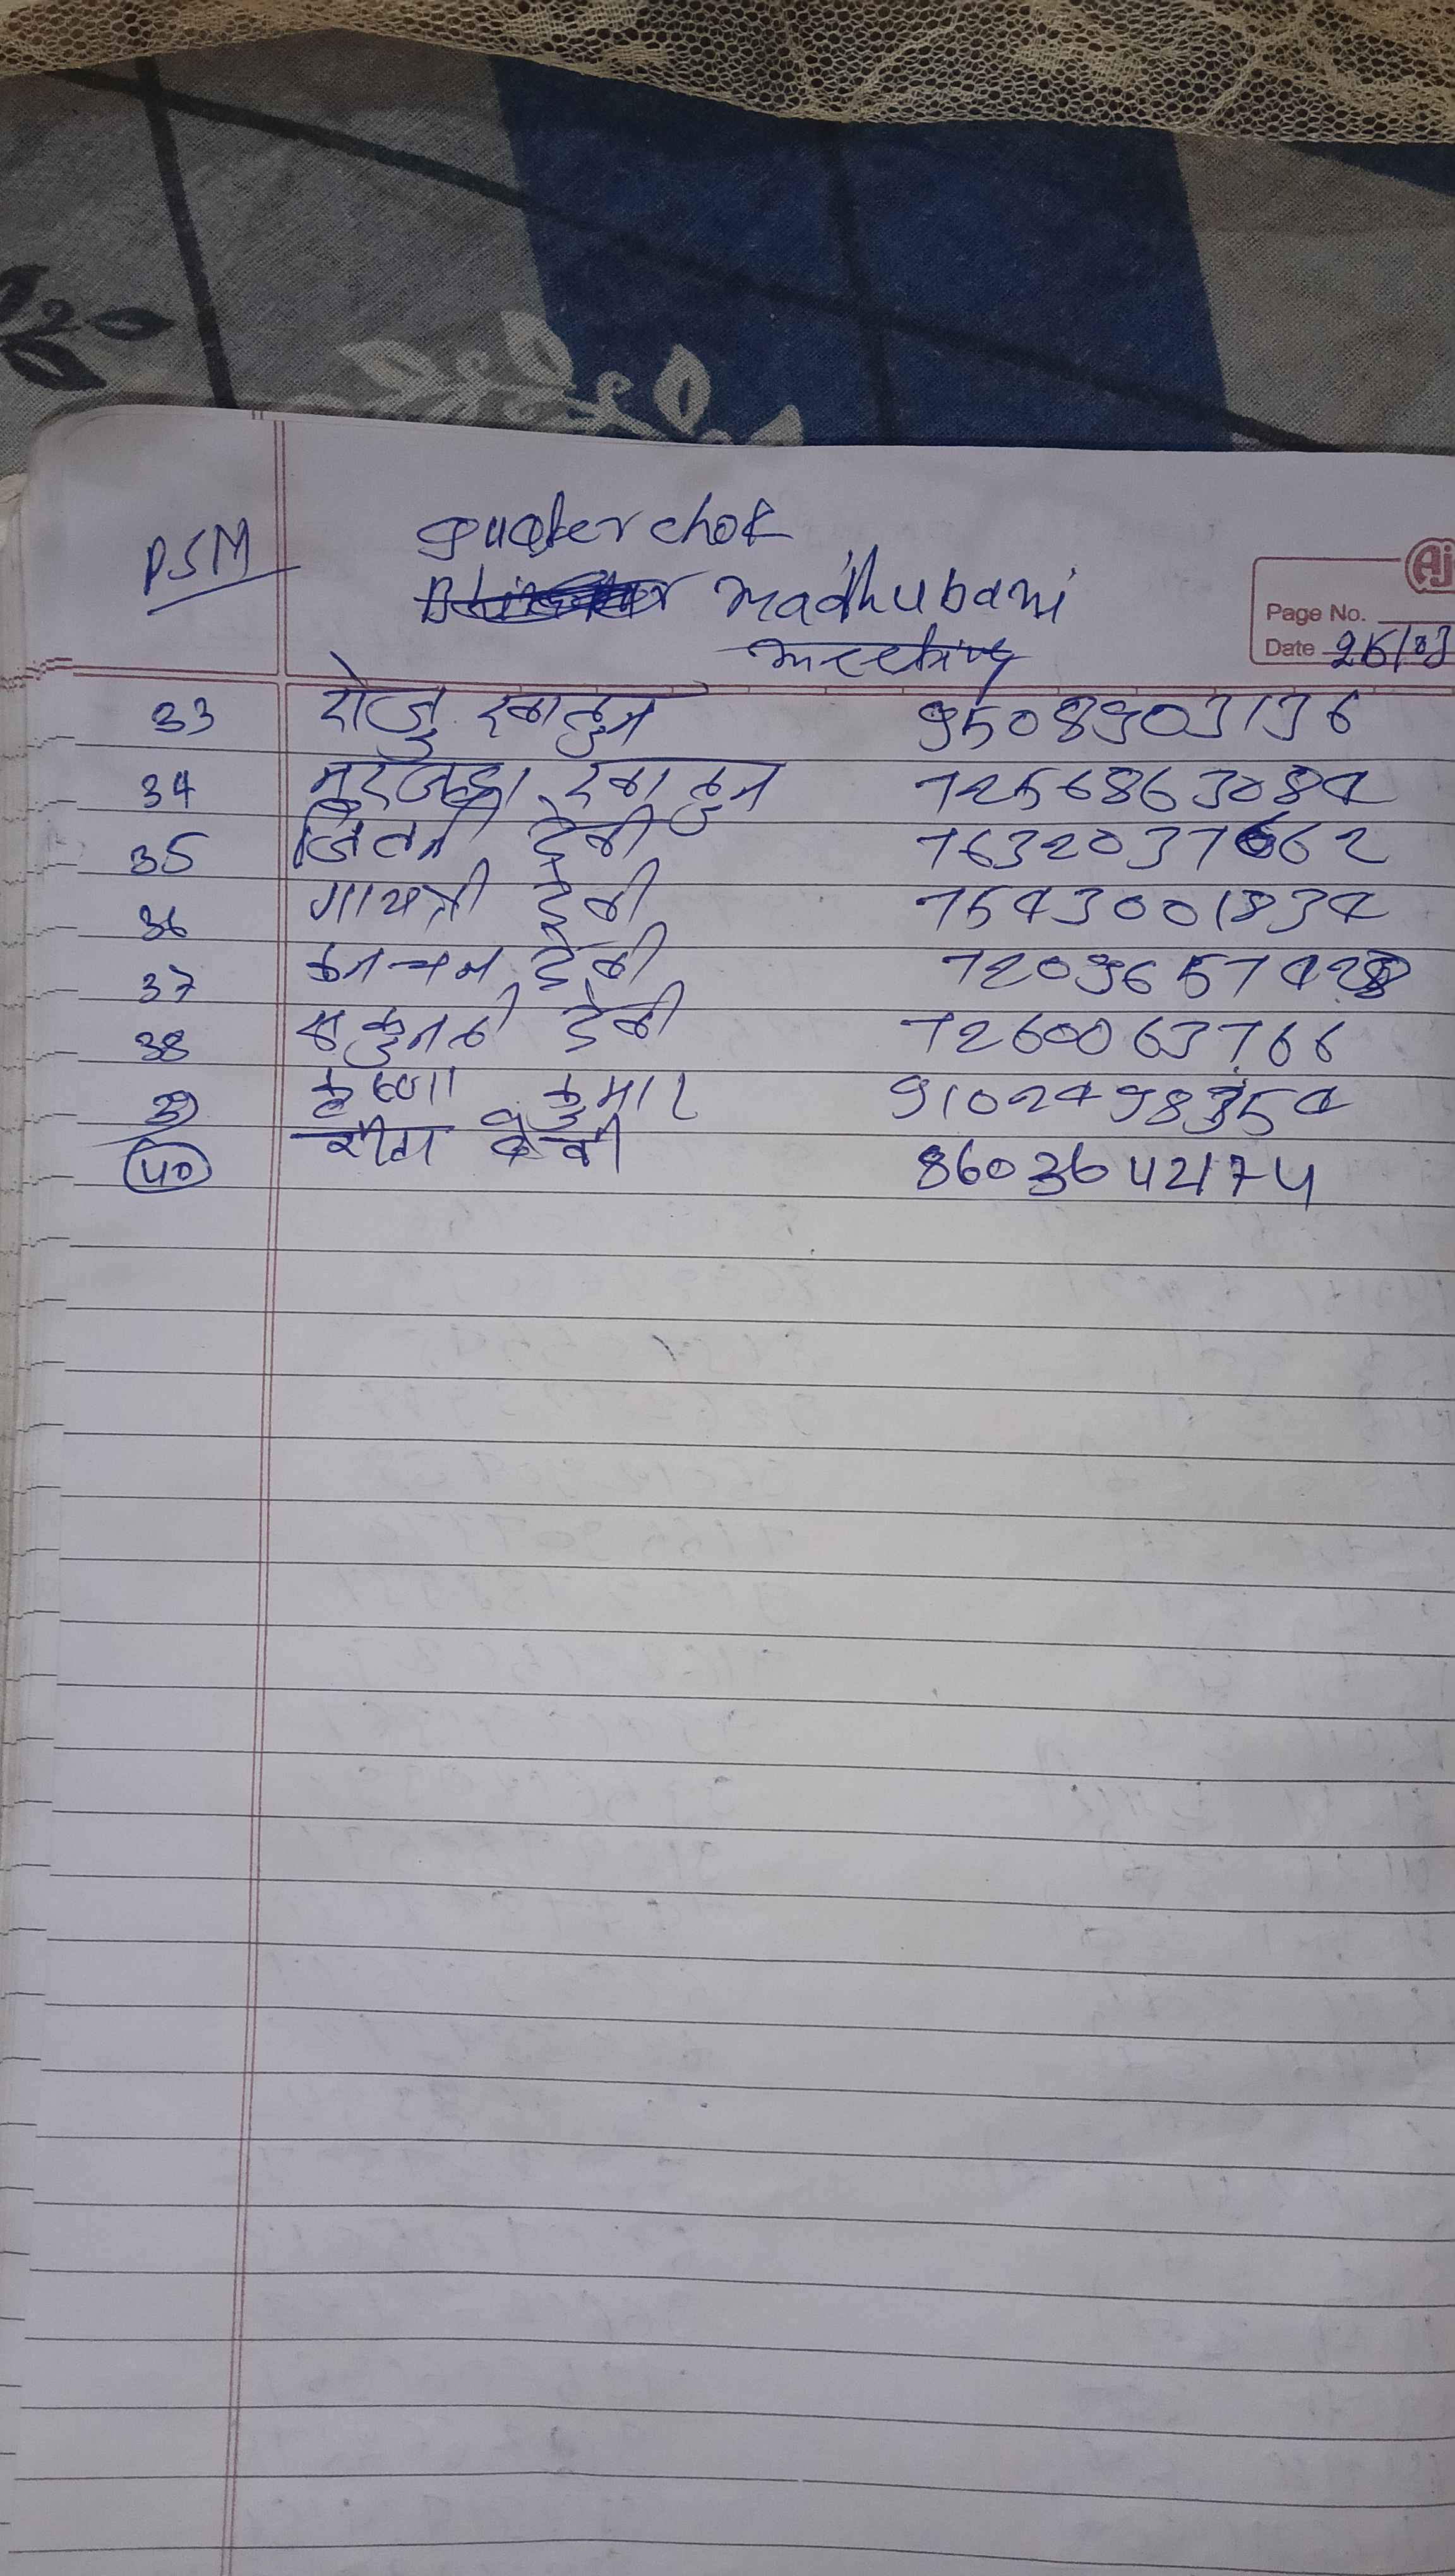 PSM
chok
madhubani
meeting
Aj
Page No.
Date 25/03
33 रोजु खातुन 9508903136
34 खातुन 7256863084
35 देवी 7632037662
36 गायत्री देवी 7543001834
37 कन्चन देवी 7209657428
38 सकुनती देवी 7260063766
39 कृष्णा कुमार 9102498354
40 देवी 8603642174